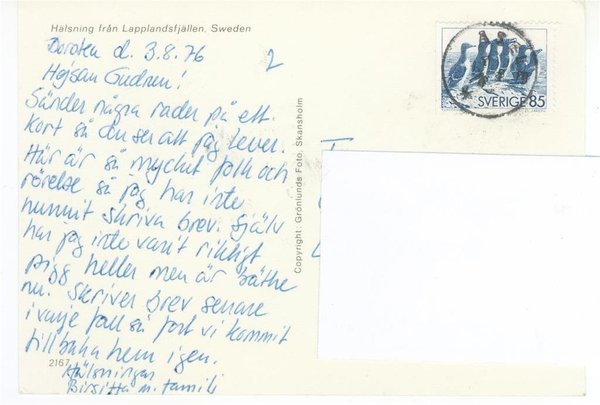 Hälsning från Lapplandsfjällen, Sweden
Dorotea d. 3.8.76
2
Hejsan Gudrun!
Sänder några rader på ett
kort så du ser att jag lever.
Här är så mycket folk och
rörelse så jag har inte
hunnit skriva brev. Själv
har jag inte varit riktigt
pigg heller men är bättre
nu. Skriver brev senare
i varje fall så fort vi kommit
tillbaka hem igen.
Hälsningar
Birgitta m. familj
2167
Copyright: Grönlunds Foto, Skansholm
SVERIGE 85